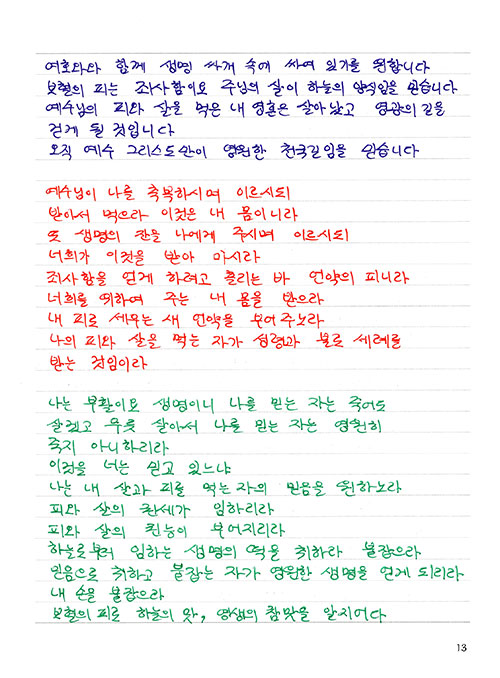 여호와와 함께 생명 싸개 속에 싸여 있기를 원합니다
보혈의 피는 죄사함이요 주님의 살이 하늘의 양식임을 믿습니다
예수님의 피와 살을 먹은 내 영혼은 살아났고 영광의 길을
걷게 될 것입니다
오직 예수 그리스도만이 영원한 천국길임을 믿습니다
예수님이 나를 축복하시며 이르시되
받아서 먹으라 이것은 내 몸이니라
또 생명의 잔을 나에게 주시며 이르시되
너희가 이것을 받아 마시라
죄사함을 얻게 하려고 흘리는 바 언약의 피니라
너희를 위하여 주는 내 몸을 받으라
내 피로 세우는 새 언약을 부어주노라
나의 피와 살을 먹는 자가 성령과 불로 세례를
받는 것임이라
나는 부활이요 생명이니 나를 믿는 자는 죽어도
살겠고 무릇 살아서 나를 믿는 자는 영원히
죽지 아니하리라
이것을 너는 믿고 있느냐
나는 내 살과 피를 먹는 자의 믿음을 원하노라
피와 살의 권세가 임하리라
피와 살의 권능이 부어지리라
하늘로부터 임하는 생명의 떡을 취하라 붙잡으라
믿음으로 취하고 붙잡는 자가 영원한 생명을 얻게 되리라
내 손을 붙잡으라
보혈의 피로 하늘의 맛, 영생의 참맛을 알지어다
13